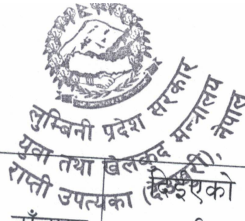 लुम्बिनी प्रदेश सरकार
युवा तथा खेलकुद मन्त्रालय
राप्ती उपत्यका (देउखुरी), नेपाल